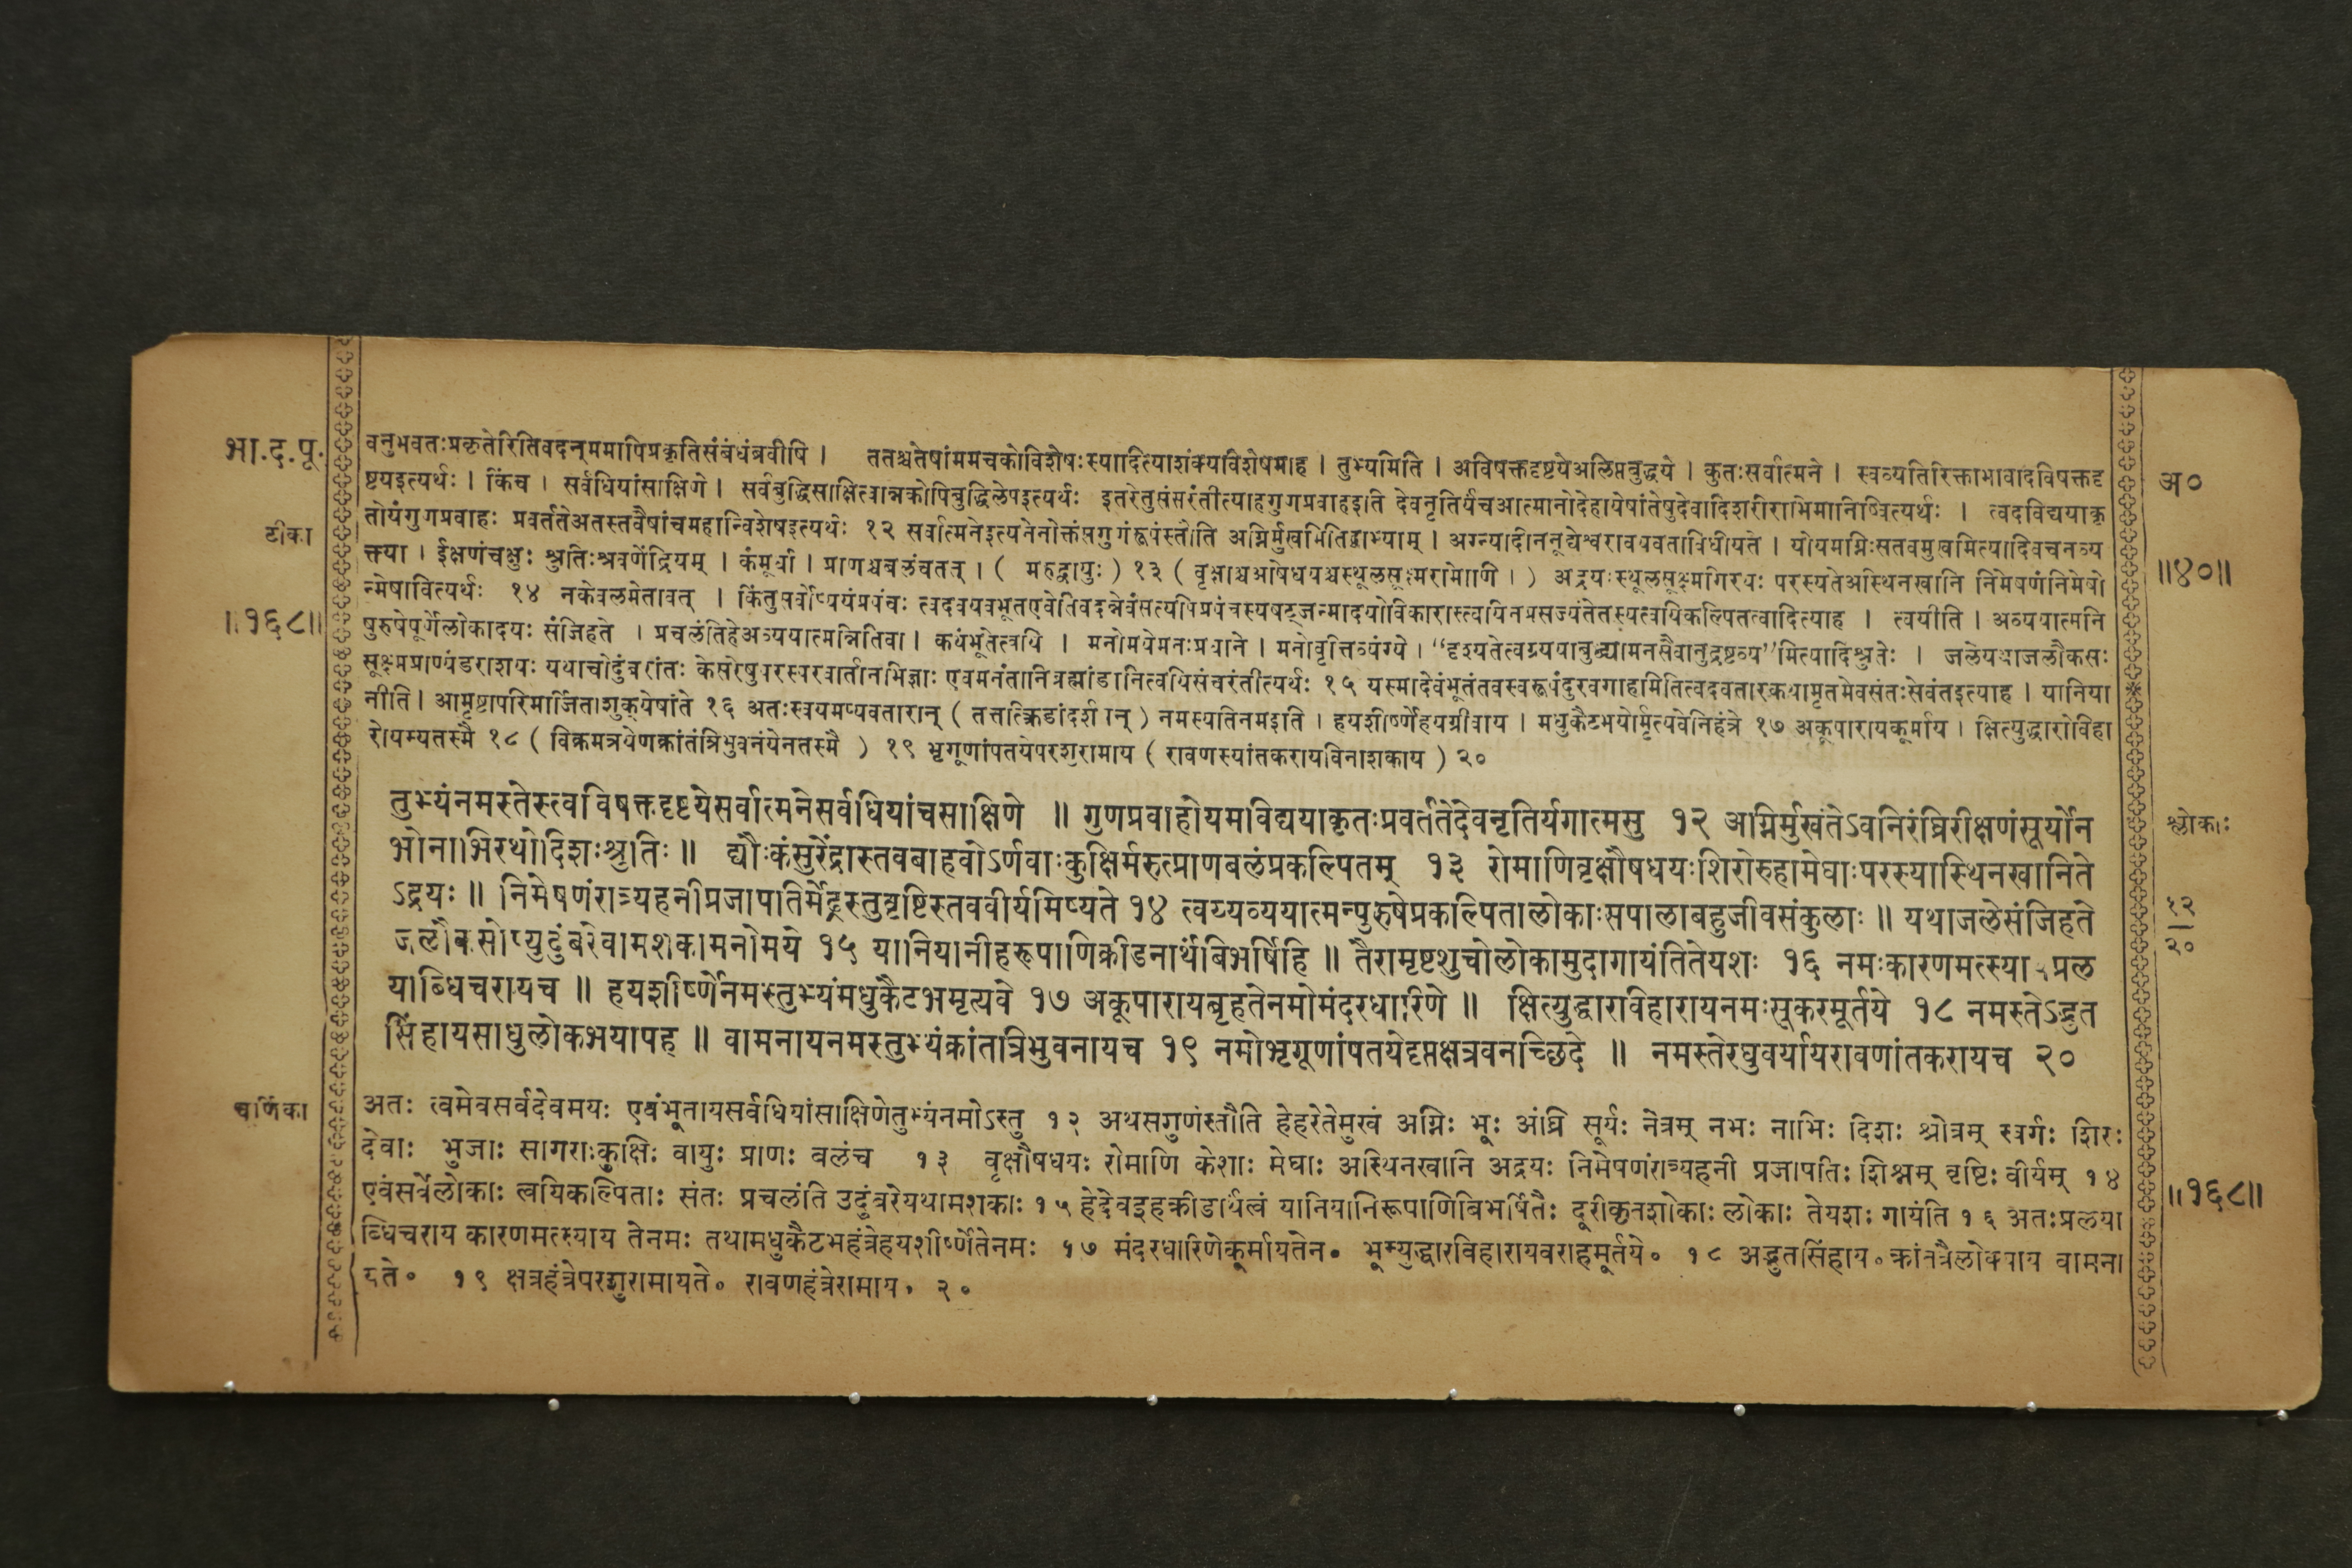 भा.द.पू.
टीका
॥१६८॥
वनुभवतःप्रकृतेरितिवदन्ममापिप्रकृतिसंबंधंब्रवीषि । ततश्चतेषांममचकोविशेषःस्यादित्याशंक्यविशेषमाह । तुभ्यमिति । अविषक्तदृष्टयेअलिप्तबुद्धये । कुतःसर्वात्मने । स्वव्यतिरिक्ताभावादविषक्तदृ
ष्टयइत्यर्थः । किंच । सर्वधियांसाक्षिणे । सर्वबुद्धिसाक्षित्वान्नकोपिबुद्धिलेपइत्यर्थः इतरेतुसंसरंतीत्याहगुणप्रवाहइति देवनृतिर्यंचआत्मानोदेहायेषांतेषुदेवादिशरीराभिमानिष्वित्यर्थः । त्वदविद्ययाकृ
तोयंगुणप्रवाहः प्रवर्ततेअतस्तवैषांचमहान्विशेषइत्यर्थः १२ सर्वात्मनेइत्यनेनोक्तंसगुणंरूपंस्तौति अग्निर्मुखमितिद्वाभ्याम् । अग्न्यादीननूद्येश्वरावयवताविधीयते । योयमग्निःसतवमुखमित्यादिवचनव्य
क्त्या । ईक्षणंचक्षुः श्रुतिःश्रवणेंद्रियम् । कंमूर्धा । प्राणश्चबलंचतत् । ( मरुद्वायुः ) १३ ( वृक्षाश्चओषधयश्चस्थूलसूक्ष्मरोमाणि । ) अद्रयःस्थूलसूक्ष्मगिरयः परस्यतेअस्थिनखानि निमेषणंनिमेषो
न्मेषावित्यर्थः १४ नकेवलमेतावत् । किंतुसर्वोप्ययंप्रपंचः त्वदवयवभूतएवेतिवदन्नेवंसत्यपिप्रपंचस्यषट्जन्मादयोविकारास्त्वयिनप्रसज्यंतेतस्यत्वयिकल्पितत्वादित्याह । त्वयीति । अव्ययात्मनि
पुरुषेपूर्णेलोकादयः संजिहते । प्रचलंतिहेअव्ययात्मन्नितिवा । कथंभूतेत्वयि । मनोमयेमनःप्रधाने । मनोवृत्तिव्यंग्ये । “दृश्यतेत्वग्र्ययाबुद्ध्यामनसैवानुद्रष्टव्य”मित्यादिश्रुतेः । जलेयथाजलौकसः
सूक्ष्मप्राण्यंडराशयः यथाचोदुंबरांतः केसरेषुपरस्परवार्तानभिज्ञाः एवमनंतानिब्रह्मांडानित्वयिसंचरंतीत्यर्थः १५ यस्मादेवंभूतंतवस्वरूपंदुरवगाहामितित्वदवतारकथामृतमेवसंतःसेवंतइत्याह । यानिया
नीति । आमृष्टापरिमार्जिताशुक्येषांते १६ अतःस्वयमप्यवतारान् ( तत्तत्क्रिडांदर्शयन् ) नमस्यतिनमइति । हयशीर्ष्णेहयग्रीवाय । मधुकैटभयोर्मृत्यवेनिहंत्रे १७ अकूपारायकूर्माय । क्षित्युद्धारोविहा
रोयस्यतस्मै १८ ( विक्रमत्रयेणक्रांतंत्रिभुवनंयेनतस्मै ) १९ भृगूणांपतयेपरशुरामाय ( रावणस्यांतकरायविनाशकाय ) २०
तुभ्यंनमस्तेस्त्वविषक्तदृष्टयेसर्वात्मनेसर्वधियांचसाक्षिणे ॥ गुणप्रवाहोयमविद्ययाकृतःप्रवर्ततेदेवनृतिर्यगात्मसु १२ अग्निर्मुखंतेऽवनिरंघ्रिरीक्षणंसूर्योन
भोनाभिरथोदिशःश्रुतिः ॥ द्यौःकंसुरेंद्रास्तवबाहवोऽर्णवाःकुक्षिर्मरुत्प्राणबलंप्रकल्पितम् १३ रोमाणिवृक्षौषधयःशिरोरुहामेघाःपरस्यास्थिनखानिते
ऽद्रयः ॥ निमेषणंरात्र्यहनीप्रजापतिर्मेढ्रस्तुवृष्टिस्तववीर्यमिष्यते १४ त्वय्यव्ययात्मन्पुरुषेप्रकल्पितालोकाःसपालाबहुजीवसंकुलाः ॥ यथाजलेसंजिहते
जलौकसोप्युदुंबरेवामशकामनोमये १५ यानियानीहरूपाणिक्रीडनार्थंबिभर्षिहि ॥ तैरामृष्टशुचोलोकामुदागायंतितेयशः १६ नमःकारणमत्स्याय प्रल
याब्धिचरायच ॥ हयशीर्ष्णेनमस्तुभ्यंमधुकैटभमृत्यवे १७ अकूपारायबृहतेनमोमंदरधारिणे ॥ क्षित्युद्धारविहारायनमःसूकरमूर्तये १८ नमस्तेऽद्भुत
सिंहायसाधुलोकभयापह ॥ वामनायनमस्तुभ्यंक्रांतत्रिभुवनायच १९ नमोभृगूणांपतयेदृप्तक्षत्रवनच्छिदे ॥ नमस्तेरघुवर्यायरावणांतकरायच २०
चूर्णिका
अतः त्वमेवसर्वदेवमयः एवंभूतायसर्वधियांसाक्षिणेतुभ्यंनमोऽस्तु १२ अथसगुणंस्तौति हेहरेतेमुखं अग्निः भूः अंघ्रि सूर्यः नेत्रम् नभः नाभिः दिशः श्रोत्रम् स्वर्गः शिरः
देवाः भुजाः सागराःकुक्षिः वायुः प्राणः बलंच १३ वृक्षौषधयः रोमाणि केशाः मेघाः अस्थिनखानि अद्रयः निमेषणंरात्र्यहनी प्रजापतिः शिश्नम् वृष्टिः वीर्यम् १४
एवंसर्वेलोकाः त्वयिकल्पिताः संतः प्रचलंति उदुंबरेयथामशकाः १५ हेदेवइहक्रीडार्थंत्वं यानियानिरूपाणिबिभर्षितैः दूरीकृतशोकाः लोकाः तेयशः गायंति १६ अतःप्रलया
ब्धिचराय कारणमत्स्याय तेनमः तथामधुकैटभहंत्रेहयशीर्ष्णेतेनमः १७ मंदरधारिणेकूर्मायतेन॰ भूम्युद्धारविहारायवराहमूर्तये॰ १८ अद्भुतसिंहाय॰ क्रांतत्रैलोक्याय वामना
यते॰ १९ क्षत्रहंत्रेपरशुरामायते॰ रावणहंत्रेरामाय॰ २०
अ०
॥४०॥
श्लोकाः
१२
२०
॥१६८॥